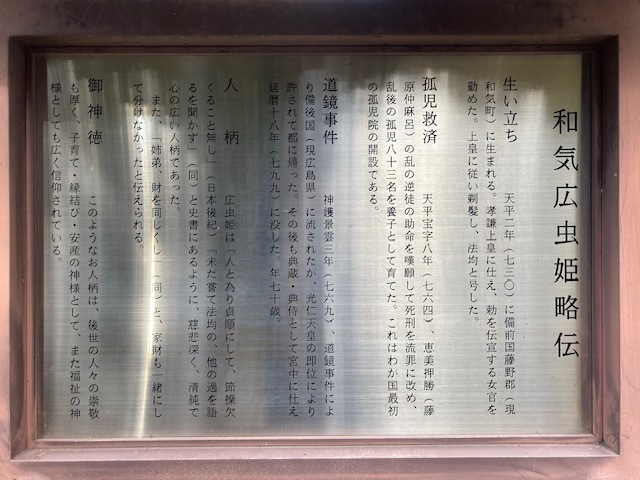 和気広虫姫略伝
生い立ち　天平二年（七三〇）に備前国藤野郡（現
和気町）に生まれる。孝謙上皇に仕え、勅を伝宣する女官を
勤めた。上皇に従い剃髪し、法均と号した。
孤児救済　天平宝字八年（七六四）、恵美押勝（藤
原仲麻呂）の乱の逆徒の助命を嘆願して死刑を流罪に改め、
乱後の孤児八十三名を養子として育てた。これはわが国最初
の孤児院の開設である。
道鏡事件　神護景雲三年（七六九）、道鏡事件によ
り備後国（現広島県）に流されたが、光仁天皇の即位により
許されて都に帰った。その後も典蔵・典侍として宮中に仕え
延暦十八年（七九九）に没した。年七十歳。
人　柄　広虫姫は「人と為り貞順にして、節操欠
くること無し」（日本後紀）「未だ嘗て法均の、他の過を語
るを聞かず」（同）と史書にあるように、慈悲深く、清純で
心の広い人柄であった。
また、「姉弟、財を同じくし」（同）と、家財も一緒にし
て分けなかったと伝えられる。
御神徳　このようなお人柄は、後世の人々の崇敬
も厚く、子育て・縁結び・安産の神様として、また福祉の神
様としても広く信仰されている。